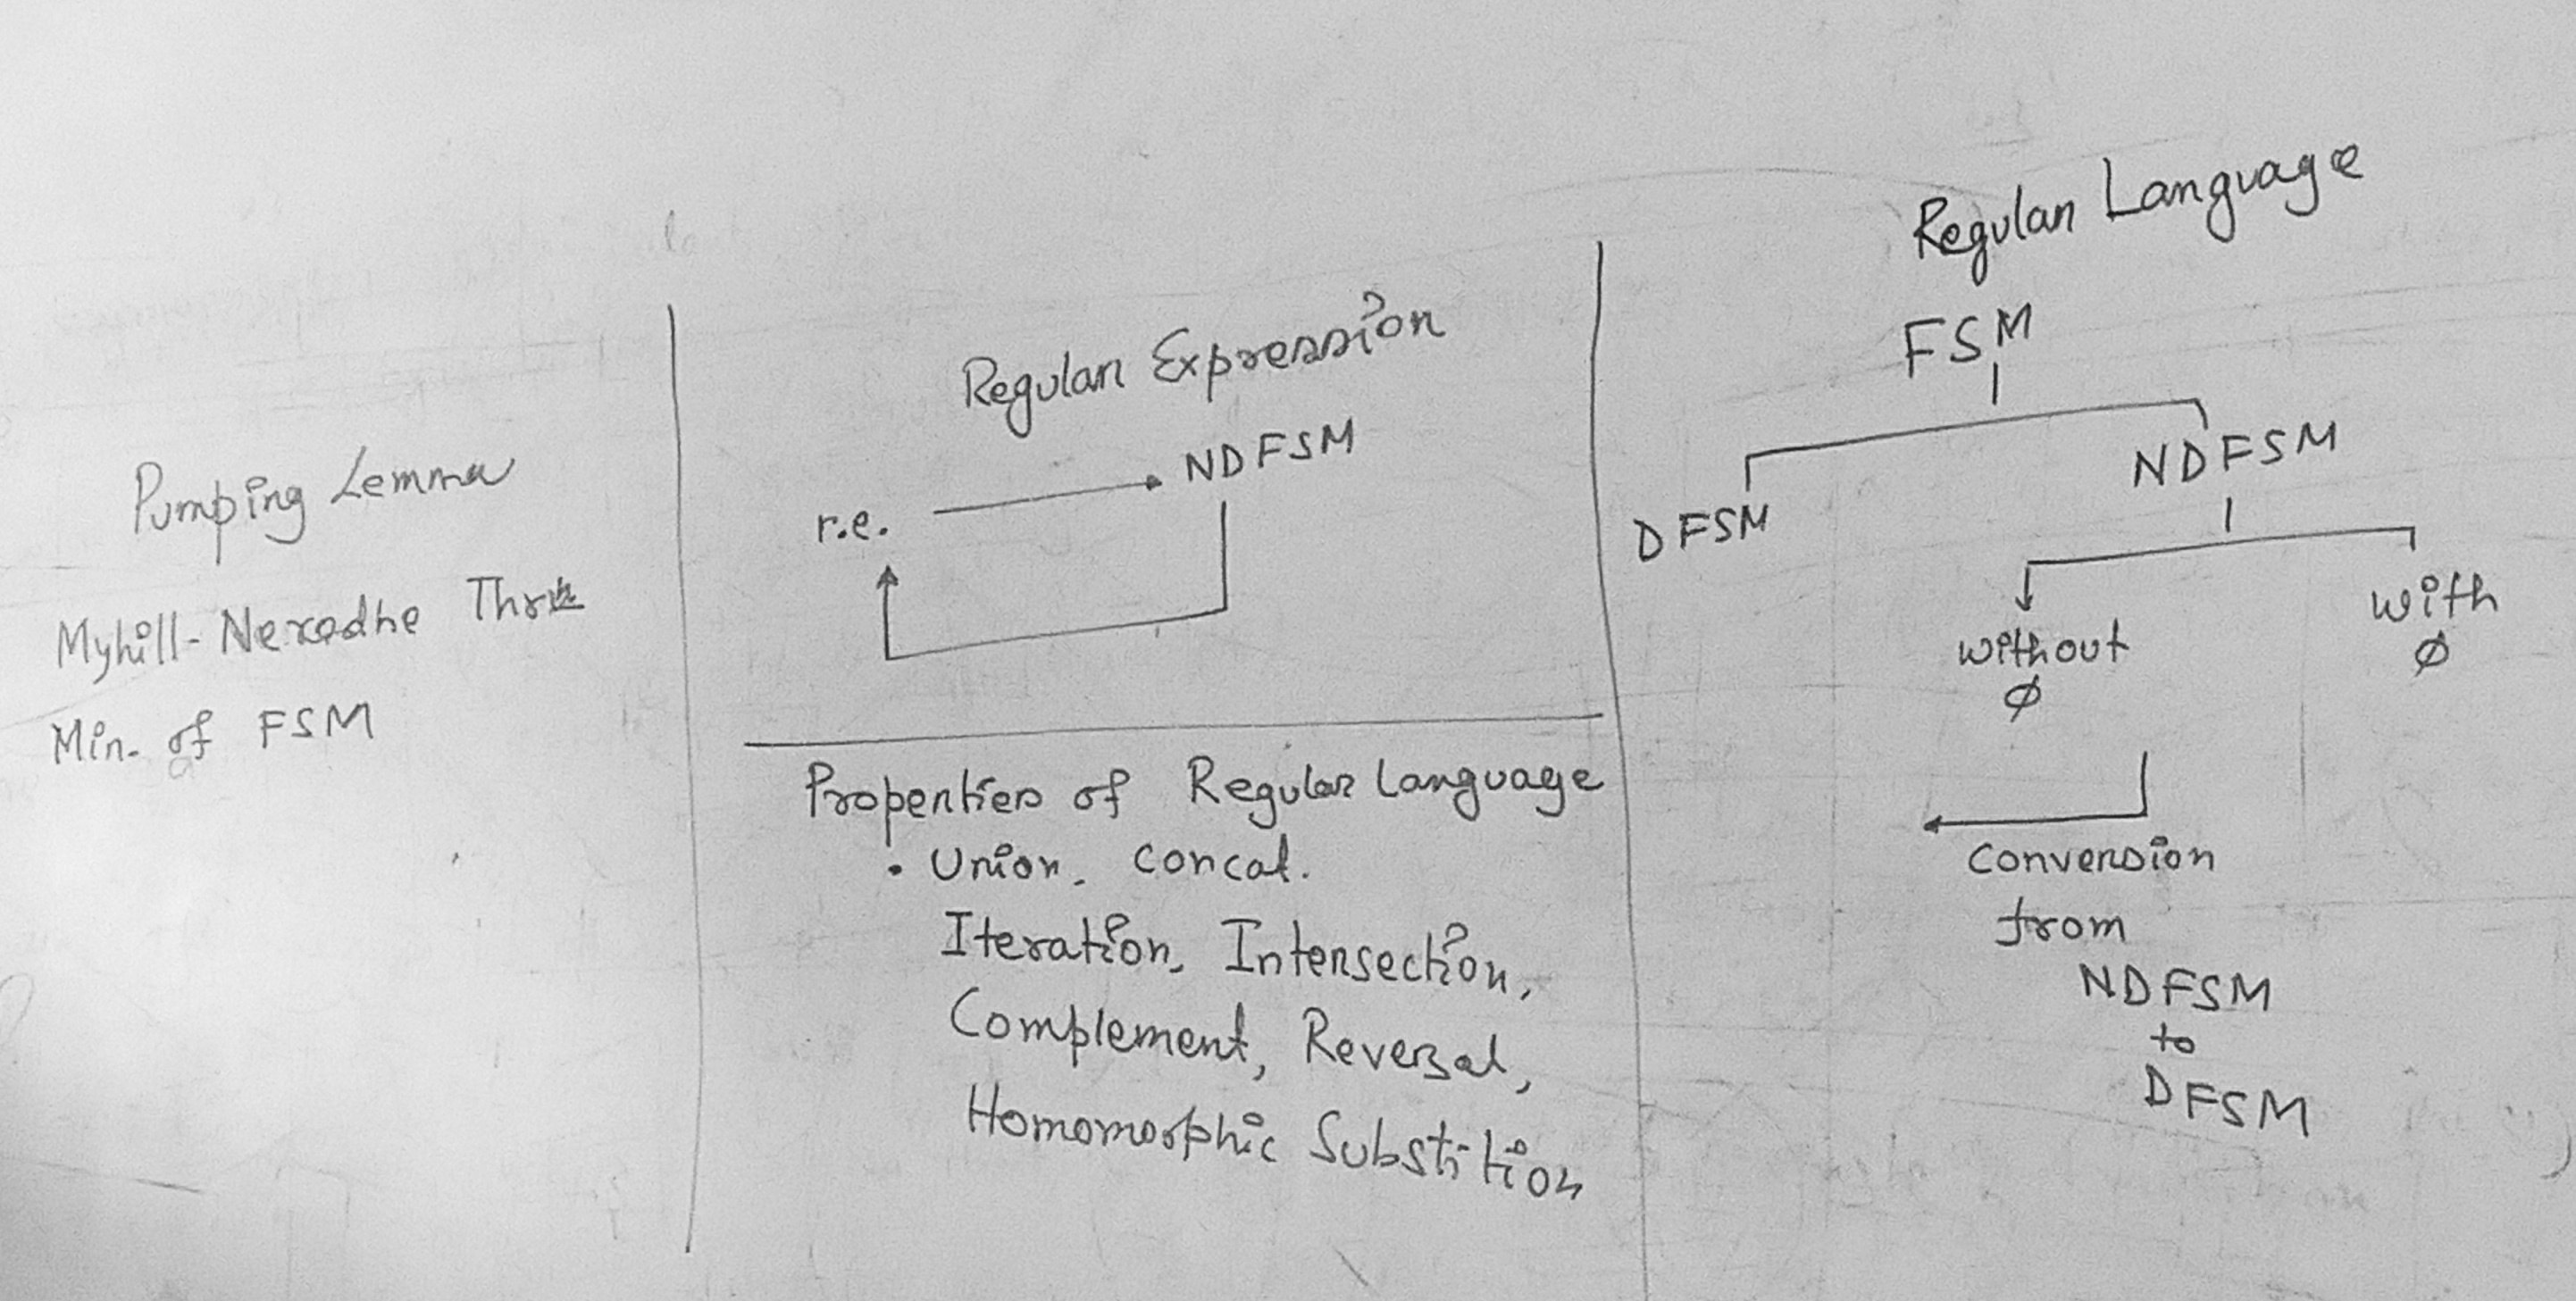 Pumping Lemma
Myhill-Nerodhe Thrm
Min. of FSM
Regular Expression
r.e. NDFSM
Properties of Regular Language
• Union, Concat.
Iteration, Intersection,
Complement, Reversal,
Homomorphic Substition
Regular Language
FSM
DFSM NDFSM
without with
ø ø
Conversion
from
NDFSM
to
DFSM